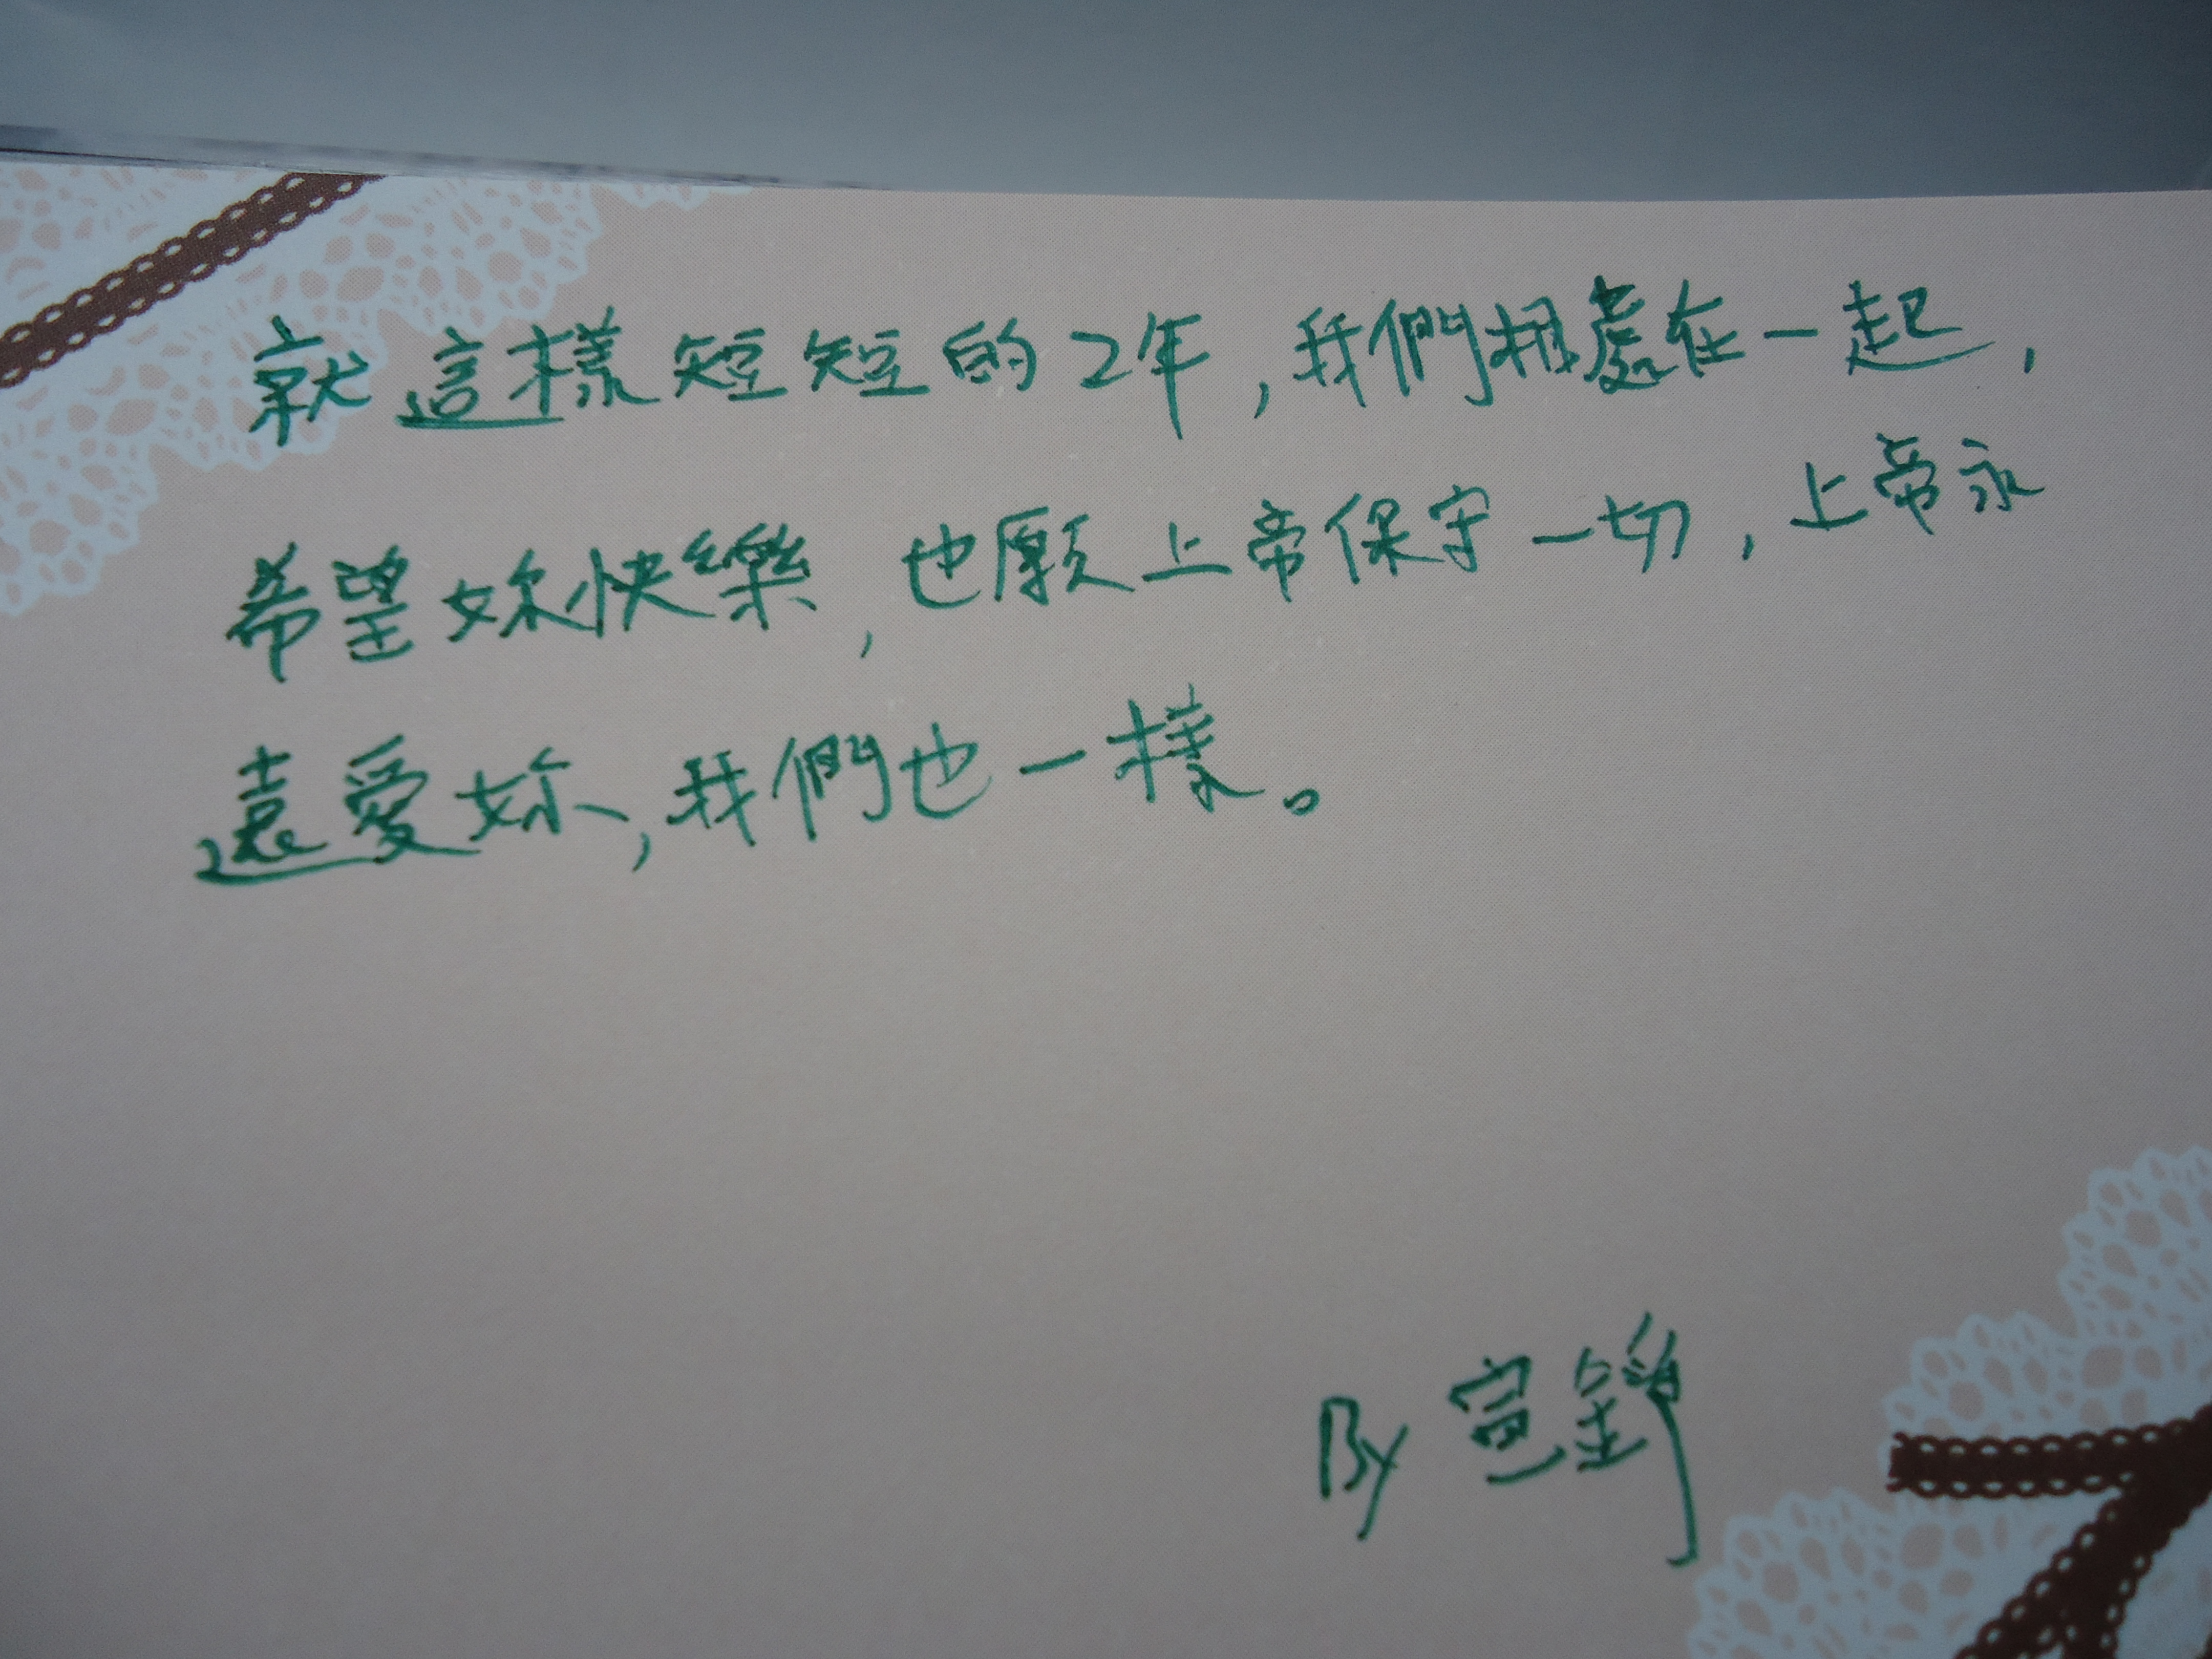 就這樣短短的2年,我們相處在一起,
希望妳快樂,也願上帝保守一切,上帝永
遠愛妳,我們也一樣。
By 宣錚